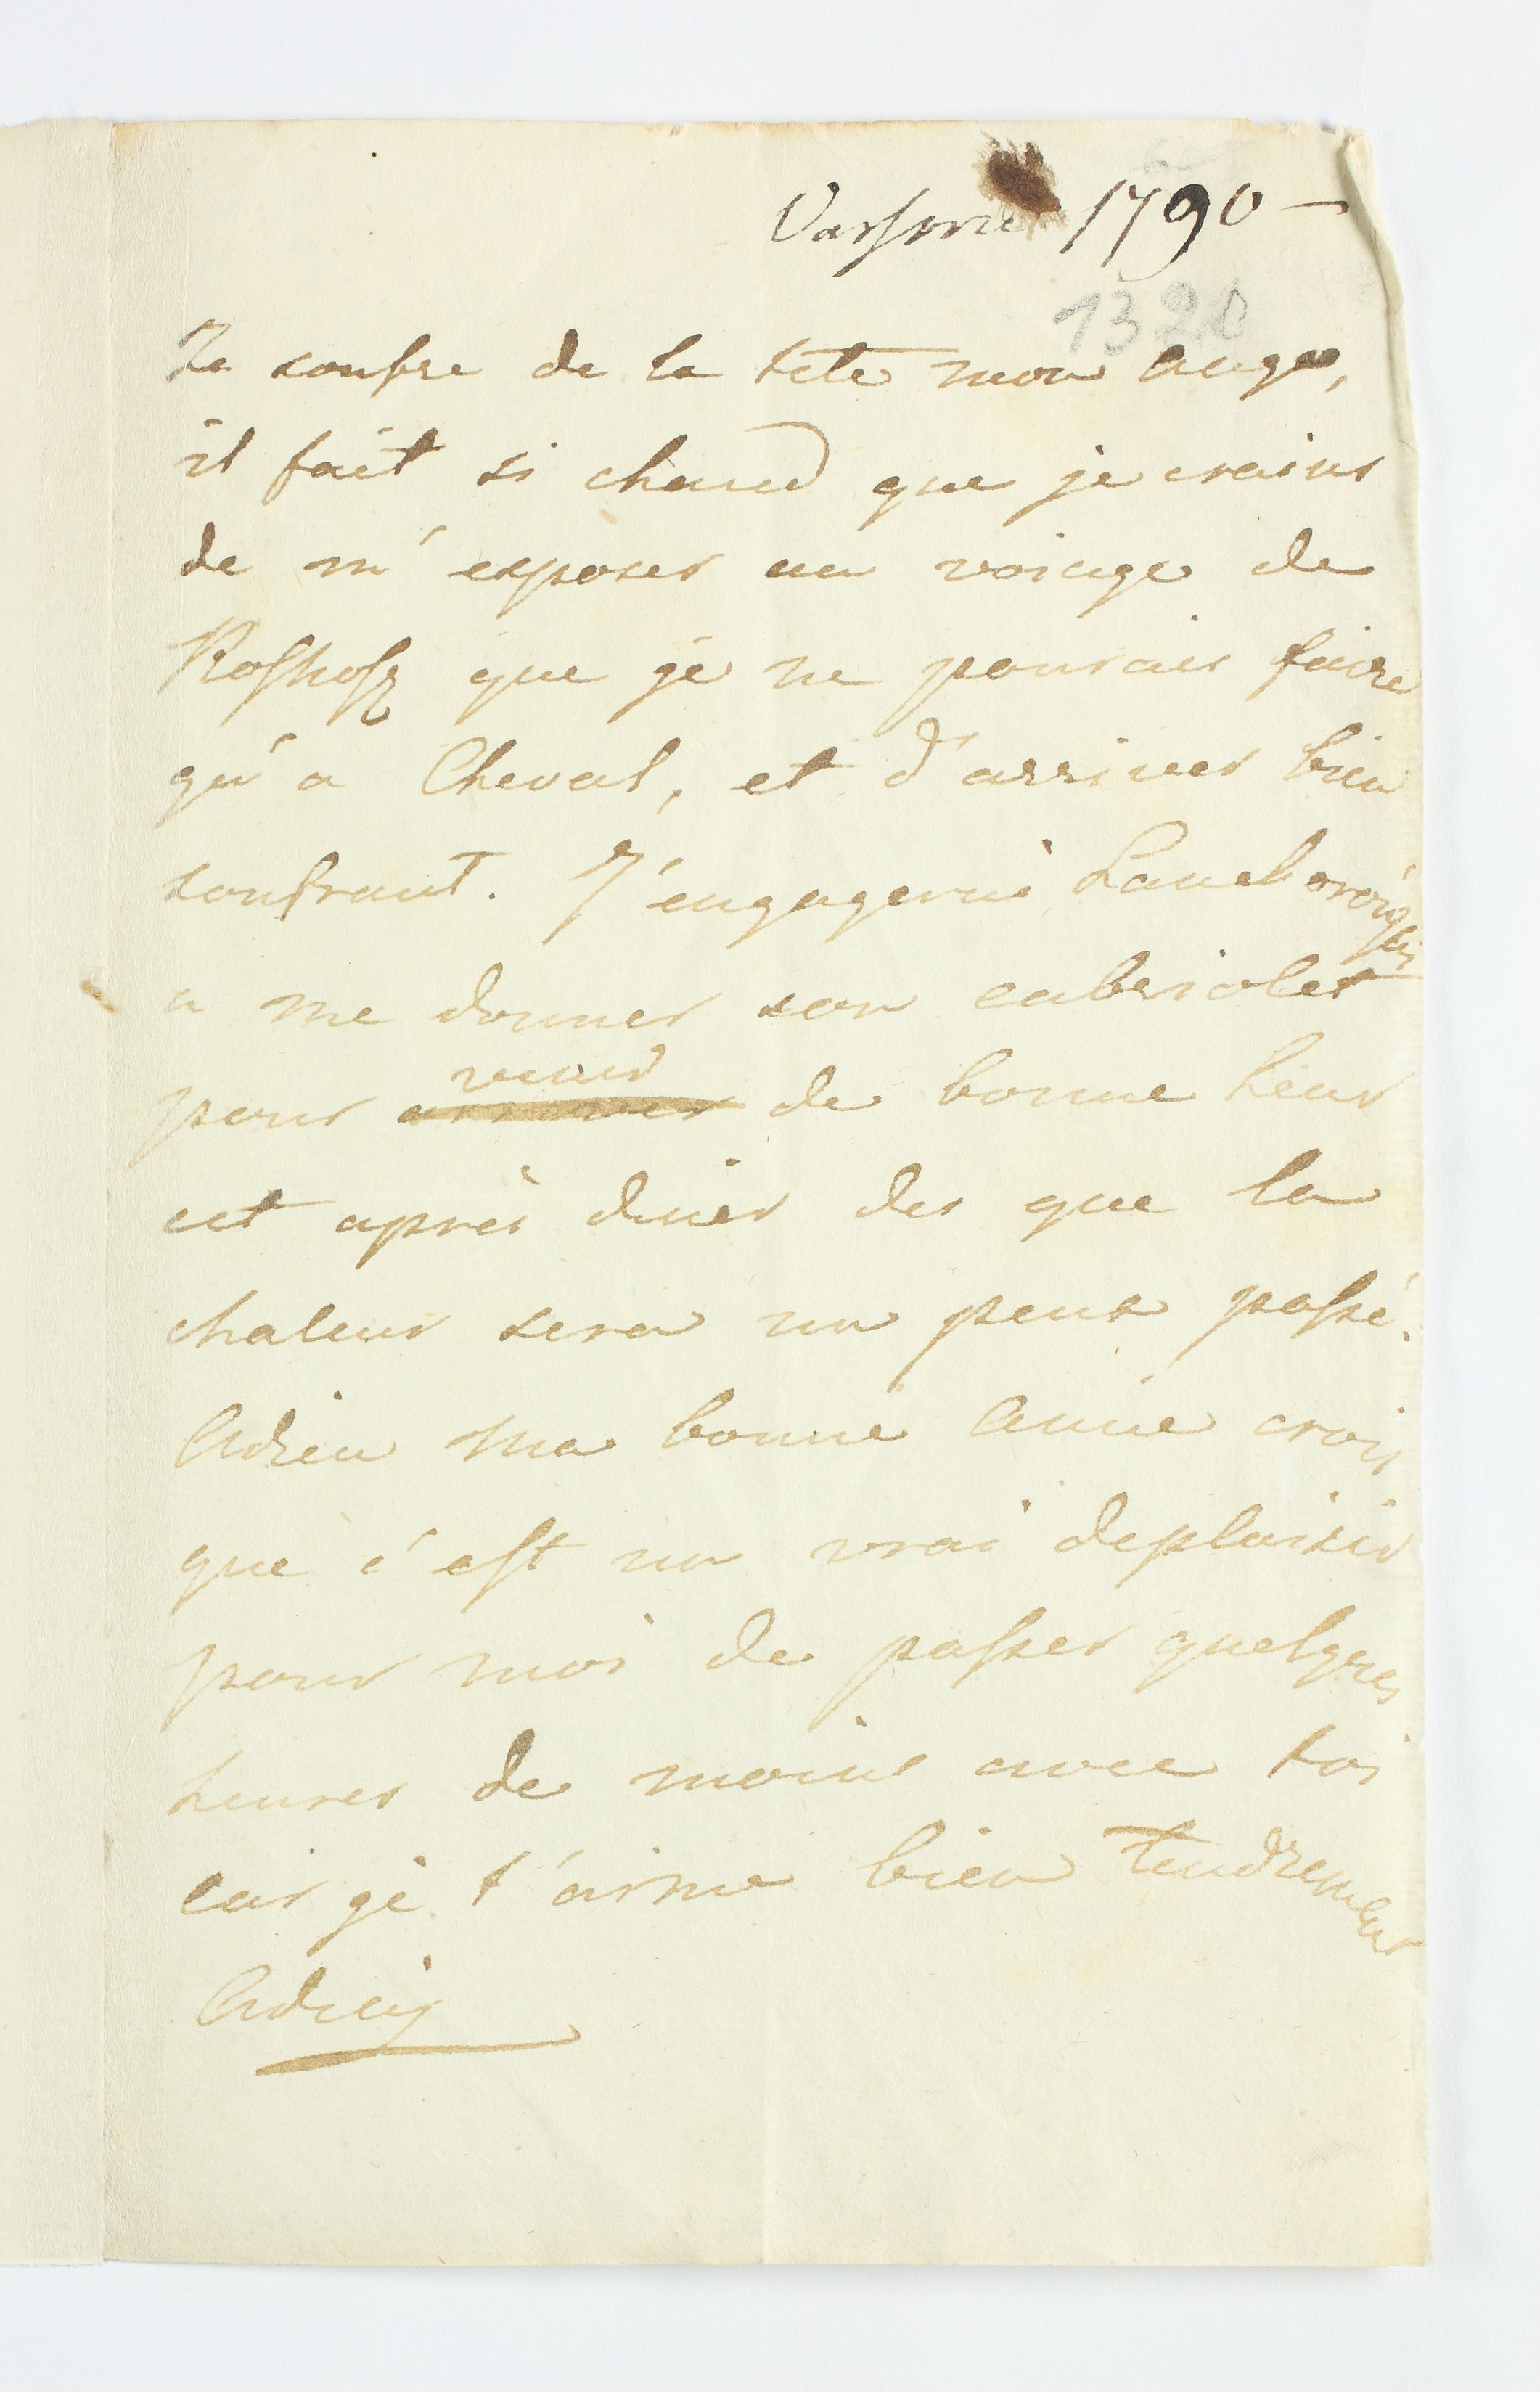 Varsovie 1790 –
1320
Je soufre de la tete mon ange,
il fait si chaud que je crains
de m'exposer au voiage de
que je ne pourais faire
qu'a Cheval, et d'arriver bien
soufrant. J'engagerai
a me donner son cabriolet
venir
pour arriver de bonne heur
cet après diner des que la
chaleur sera un peux passé.
Adieu ma bonne amie crois
que c'est un vrai deplaisir
pour moi de passer quelques
heures de moins avec toi
car je t'aime bien tendrement
Adieu